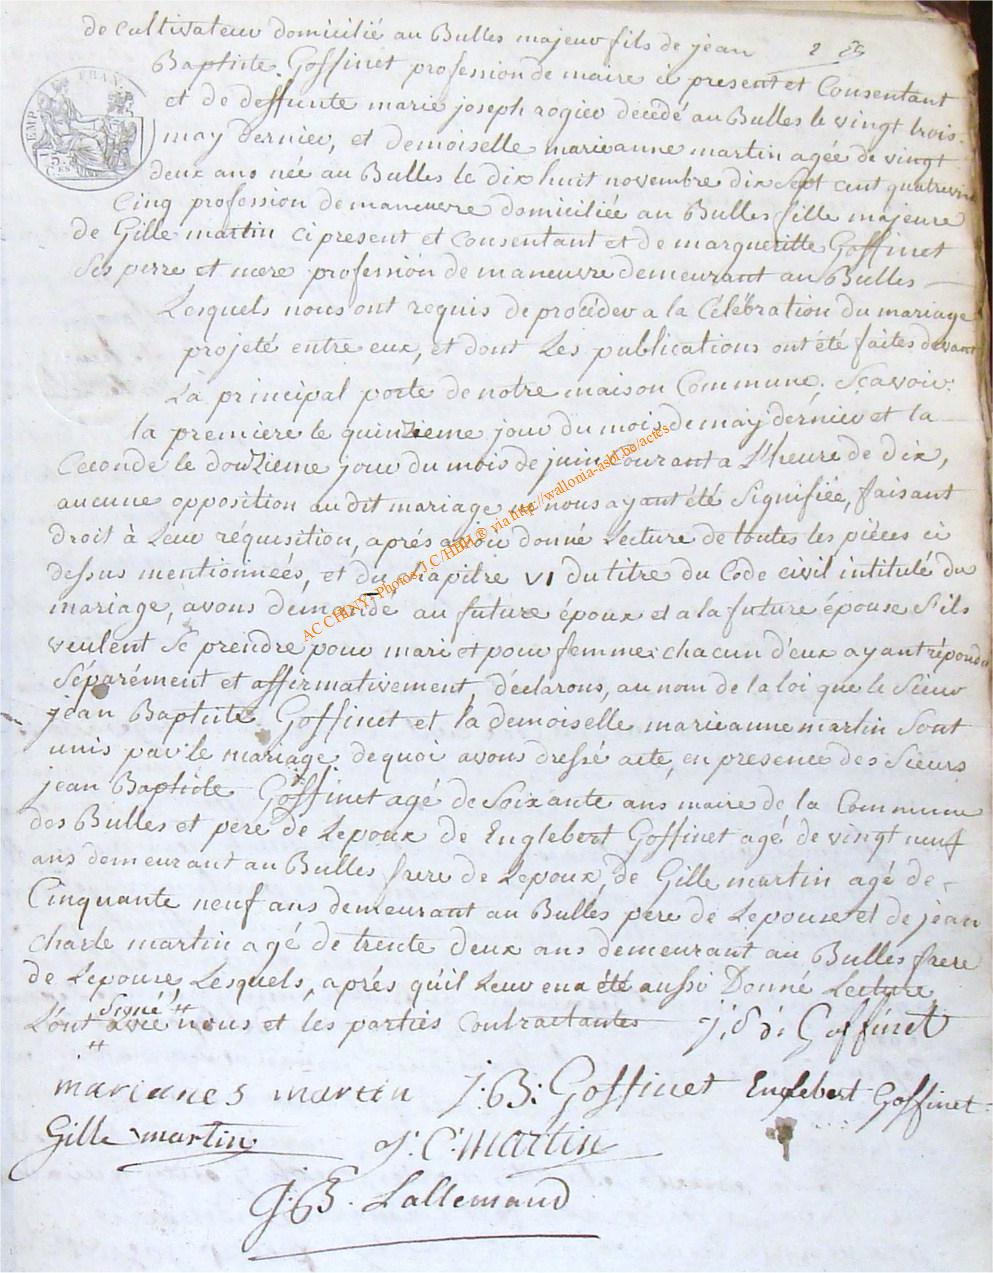 de Cultivateur domicilié au Bulles majeur fils de jean
Baptiste Goffinet profession de maire ci present et Consentant
et de deffunte marie joseph rogier decedé au Bulles le vingt trois
may dernier, et demoiselle marieanne martin agée de vingt
deux ans née au Bulles le dix huit novembre dix sept cent quatrevingt
Cinq profession de maneuvre domiciliée au Bulles fille majeure
de Gille martin ci present et Consentant et de margueritte Goffinet
Ses perre et mere profession de maneuvre demeurant au Bulles
Lesquels nous ont requis de procéder a la Célébration du mariage
projeté entre eux, et dont Les publications ont été faites devant
La principal porte de notre maison Commune, Scavoir:
la premiere le quinzieme jour du mois de may dernier et la
Ceconde le douzieme jour du mois de juin Courant a L'heure de dix,
aucune opposition audit mariage ne nous ayant été Signifiée, faisant
droit à Leur réquisition, aprés avoir donné Lecture de toutes les pièces ci
dessus mentionneés, et du Chapitre VI du titre du Code civil intitulé du
mariage, avons demandé au future époux et a la future épouse S'ils
veulent Se prendre pour mari et pour femme: chacun d'eux ayant répondu
Séparément et affirmativement, déclarons, au nom de la loi que le Sieur
jean Baptiste Goffinet et la demoiselle marieanne martin Sont
unis par le mariage, de quoi avons dressé acte, en presence des Sieurs
jean Baptiste Goffinet agé de Soixante ans maire de la Commune
des Bulles et père de Lepoux de Englebert Goffinet agé de vingt neuf
ans demeurant au Bulles frere de Lépoux, de Gille martin agé de
Cinquante neuf ans demeurant au Bulles père de Lepouse et de jean
Charle martin agé de trente deux ans demeurant au Bulles frere
de Lepouse, Lesquels, aprés qu'il Leur en a été aussi Donné Lecture
Signé #
L'ont avec nous et les parties Contractantes J: B: Goffinet
#
marianes martin J: B: Goffinet Englebert Goffinet
Gille martin J: C: martin
J: B. Lallemand
EMP. FRANC.
AC CHINY - Photos J.C./HBH.® via http://wallonia-asbl.be/actes